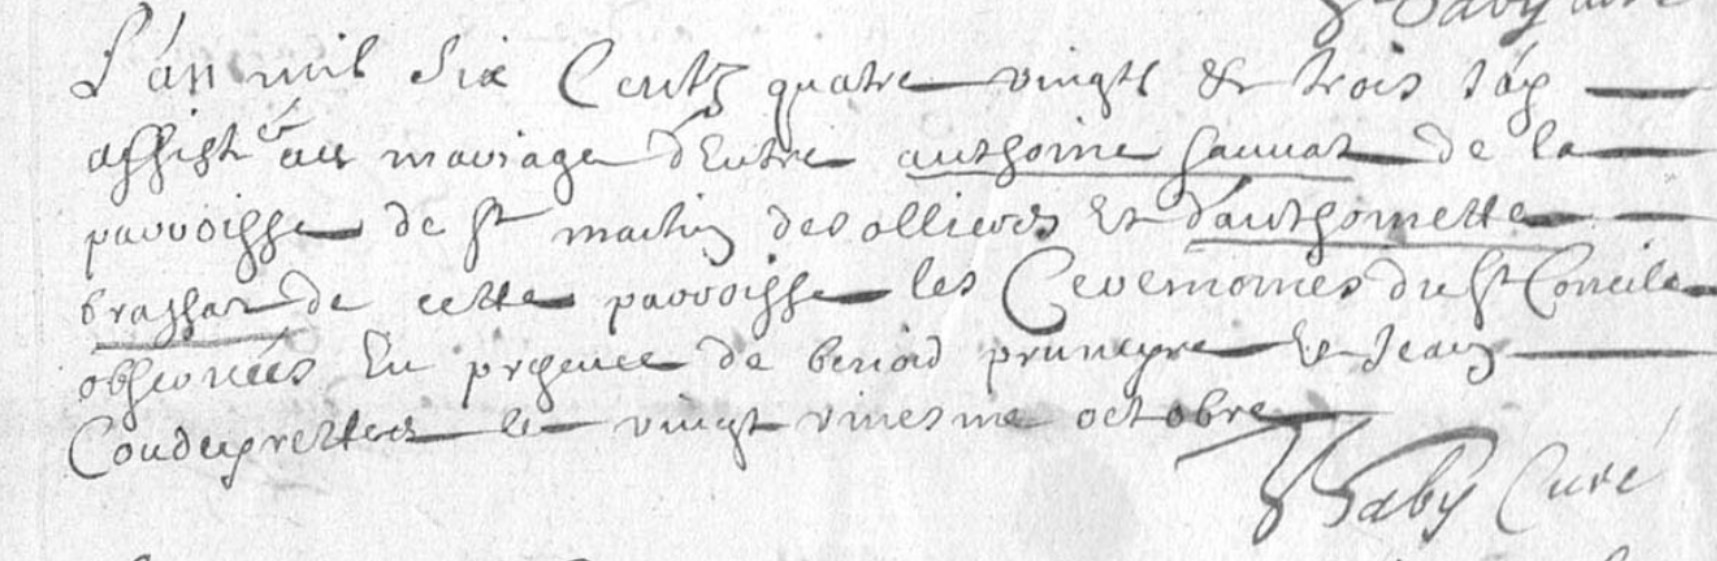 L'an mil six Centz quatre vingts & trois j'ay
assisté au mariage d'Entre anthoine sauuat de la
parroisse de st martin des ollieres Et d'anthoinette
brassat de cette parroisse les Ceremonies du st Concile
obseruées En presence de benoid pruneyre Et Jean
Coudeyrettes le vingt uniesme octobre
Gaby Curé